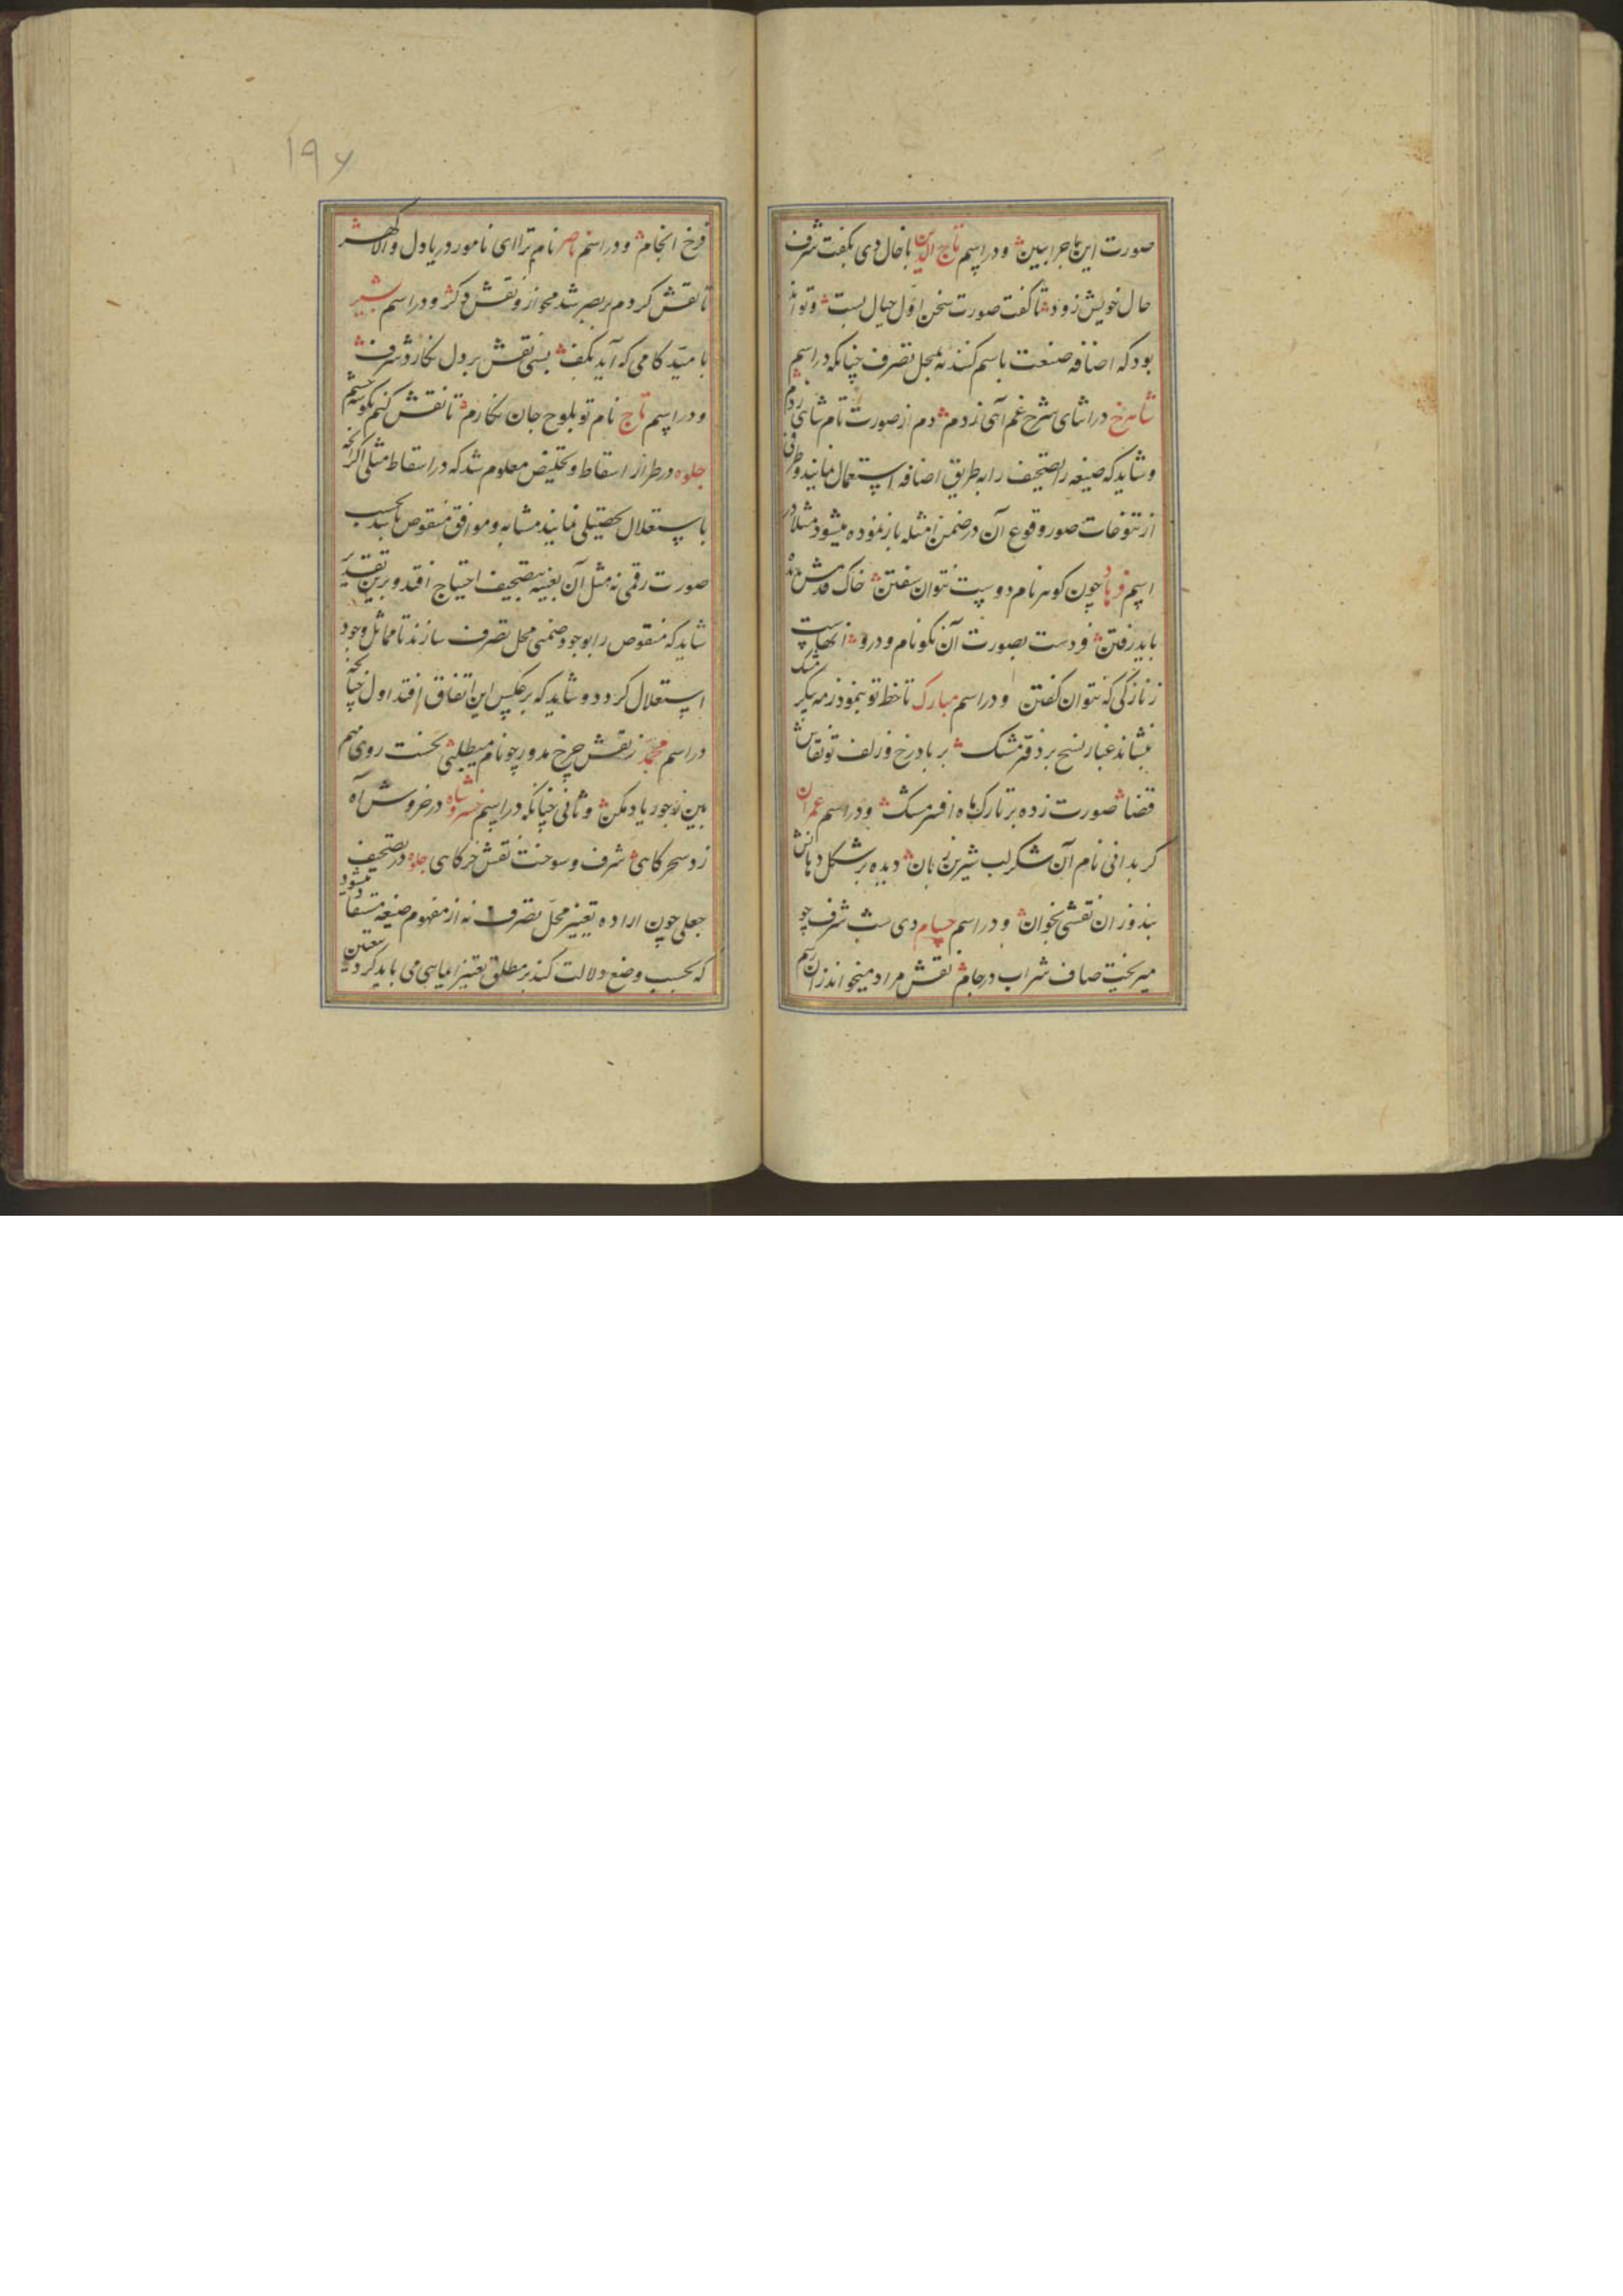 صورت این ماجرا ببین و در اسم تاج الدین با خال دی بگفت شرف
حال خویش زود تا گفت صورت سخن اول خیال بست و تواند
بود که اضافه صنعت باسم کنند نه بمحل تصرف چنانکه در اسم
شاهرخ در اثنای شرح غم آهی زدم دم از صورت نام شاهی زدم
و شاید که صیغه تصحیف را به طریق اضافه استعمال نمایند و طرفی
از تنوعات صور وقوع آن در ضمن امثله باز نموده میشود مثلا در
اسم فرهاد چون گوهر نام دوست نتوان سفتن خاک قدمش بدیده
باید رفتن فردست بصورت آن نکو نام و درو آنهاست
ز نازکی که نتوان گفتن و در اسم مبارک تا خط تو بنمود ز مه پیکر مشک
بنشاند غبار نسخ بر دفتر مشک بر باد رخ و زلف تو نقاش
قضا صورت زده بر تارک ماه افسر مشک و در اسم عمران
گر بدانی نام آن شکر لب شیرین زبان دیده بر شکل دهانش
بند وز ان نقشی بخوان و در اسم حسام دی شب شرف چو
میریخت صاف شراب در جام نقش مراد میخواند زان رسم
فرخ انجام و در اسم ناصر نام ترا ای نامور دریا دل والا گهر
تا نقش کردم بر بصر شد محو ازو نقش دگر و در اسم بشیر
بامید کامی که آید بکف بسی نقش بر دل نگارد شرف
و در اسم تاج نام تو بلوح جان نگارم تا نقش کنم بگوشه چشم
جلوه در طراز اسقاط و تخلیص معلوم شد که در اسقاط مثلی اگر آنچه
باستقلال تحصیلی نمایند مشابه و موافق منقوص باشد بحسب
صورت رقمی نه مثل آن بعینه بتصحیف احتیاج افتد و برین تقدیر
شاید که منقوص را بوجود ضمنی محل تصرف سازند تا مماثل وجود
استقلال گردد و شاید که بر عکس این اتفاق افتد اول چنانچه
در اسم محمد ز نقش چرخ مدور چو نام میطلبی نخست روی مهم
بین ز جور یاد مکن و ثانی چنانکه در اسم خسروشاه در خروش آه
زد سحرگاهی شرف و سوخت نقش خرگاهی جلوه در تصحیف
جعلی چون اراده تغییر محل تصرف نه از مفهوم صیغه مستفاد میشود
که بحسب وضع دلالت کند بر مطلق تغییر ایمایی می باید کرد بتعیین
۱۹۶